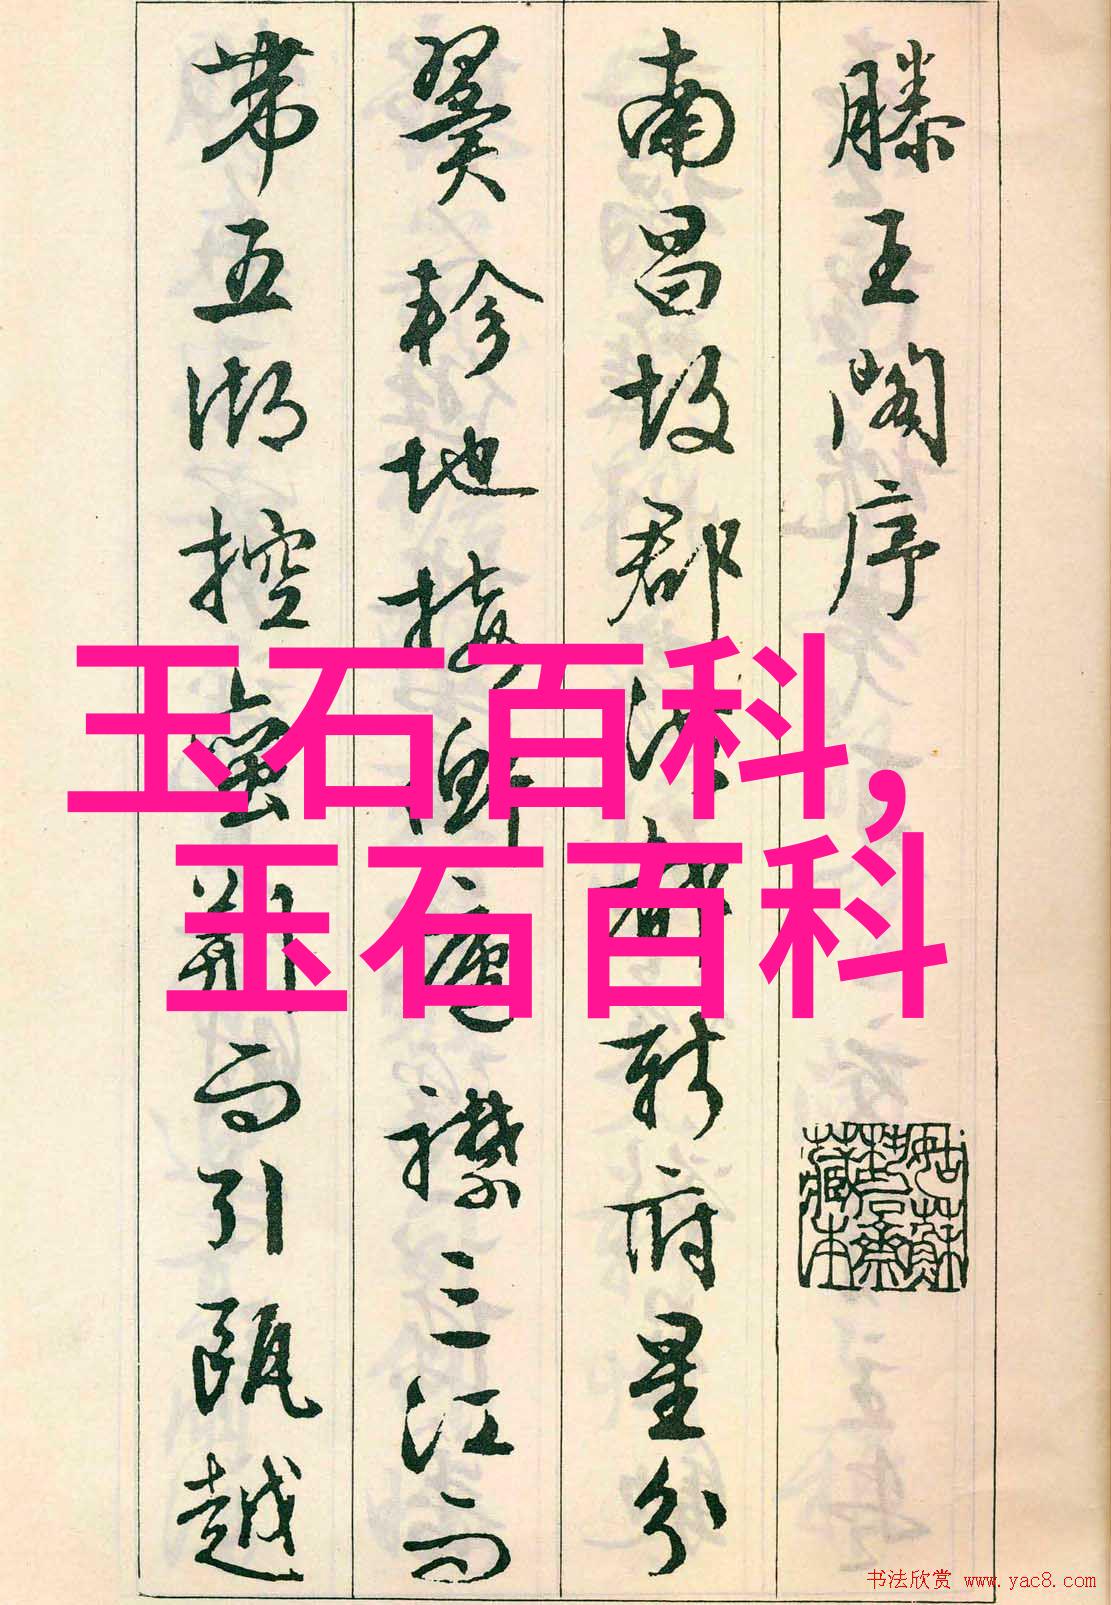 滕王閣序
南昌故郡洪都新府星分
翼軫地接衡廬襟三江而
帶五湖控蠻荊而引甌越
玉石百科,
玉石百科
姑蘇
藏本
书法欣赏 www.yac8.com